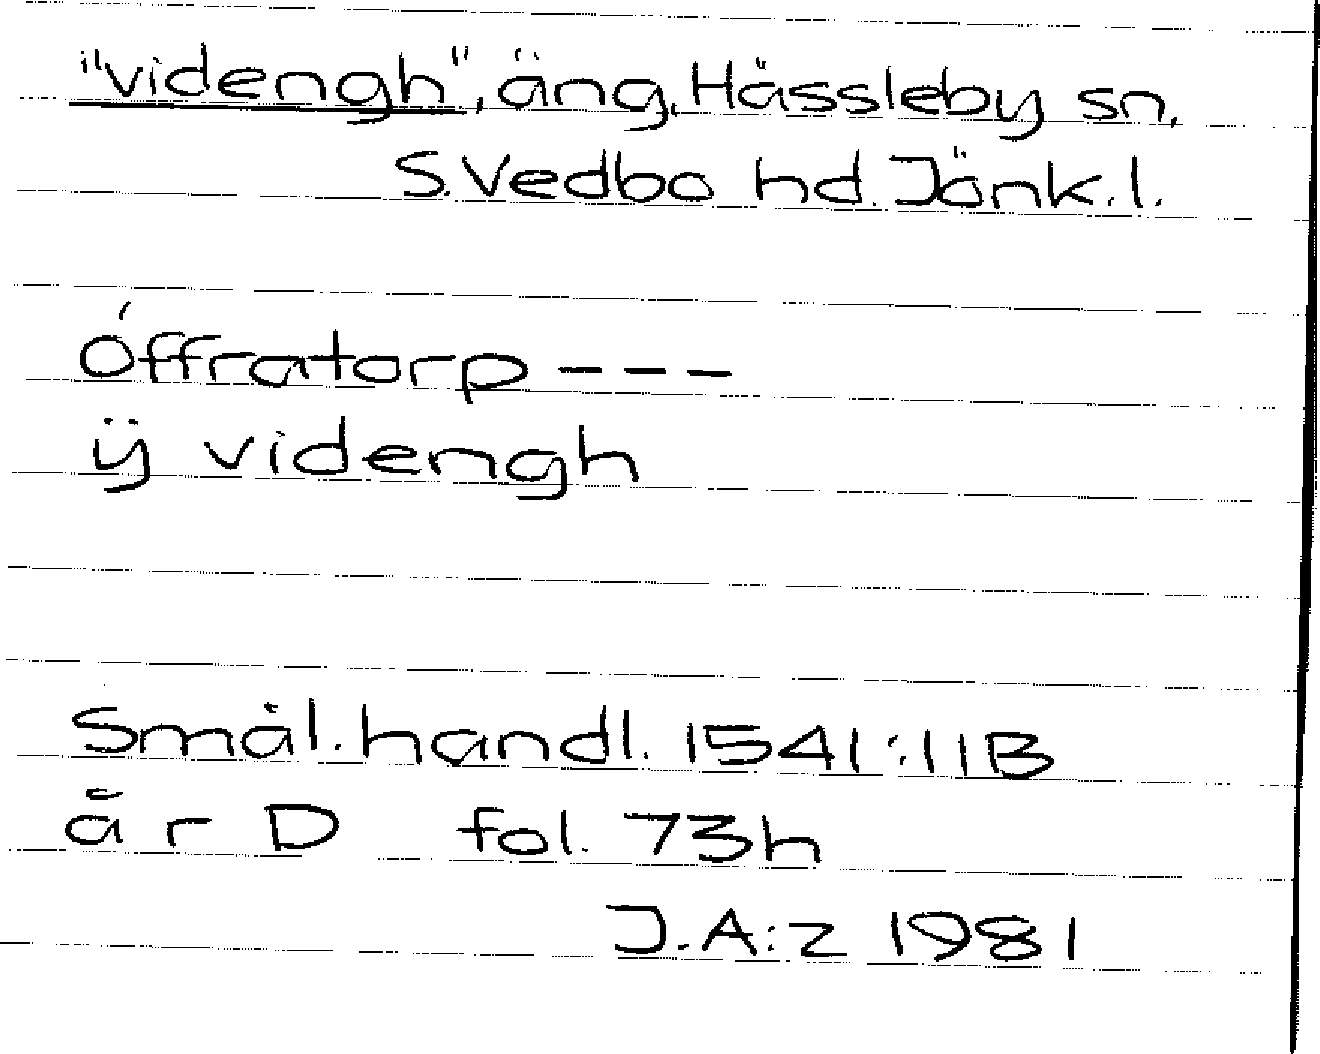 "videngh", äng, Hässleby sn.
S. Vedbo hd. Jönk. l.
Óffratorp - - -
ÿ videngh
Smål. handl. 1541:11B
är D fol. 73h
J.A:z 1981